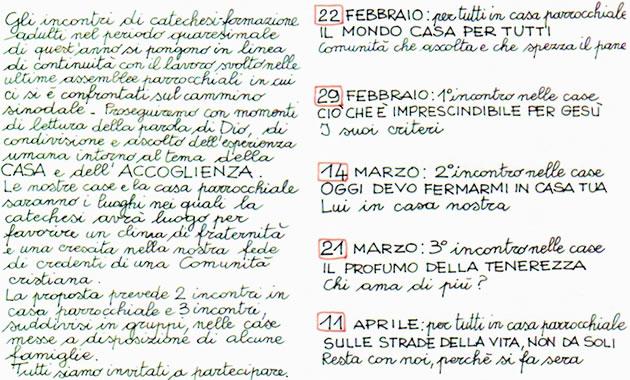 Gli incontri di catechesi-formazione
adulti nel periodo quaresimale
di quest'anno si pongono in linea
di continuità con il lavoro svolto nelle
ultime assemblee parrocchiali in cui
ci si è confrontati sul cammino
sinodale. Proseguiremo con momenti
di lettura della parola di Dio, di
condivisione e ascolto dell'esperienza
umana intorno al tema della
CASA e dell'ACCOGLIENZA.
Le nostre case e la casa parrocchiale
saranno i luoghi nei quali la
catechesi avrà luogo per
favorire un clima di fraternità
e una crescita nella nostra fede
di credenti di una Comunità
cristiana.
La proposta prevede 2 incontri in
casa parrocchiale e 3 incontri,
suddivisi in gruppi, nelle case
messe a disposizione di alcune
famiglie.
Tutti siamo invitati a partecipare.
22 FEBBRAIO: per tutti in casa parrocchiale
IL MONDO CASA PER TUTTI
Comunità che ascolta e che spezza il pane
29 FEBBRAIO: 1° incontro nelle case
CIÒ CHE È IMPRESCINDIBILE PER GESÙ
I suoi criteri
14 MARZO: 2° incontro nelle case
OGGI DEVO FERMARMI IN CASA TUA
Lui in casa nostra
21 MARZO: 3° incontro nelle case
IL PROFUMO DELLA TENEREZZA
Chi ama di più?
11 APRILE: per tutti in casa parrocchiale
SULLE STRADE DELLA VITA, NON DA SOLI
Resta con noi, perchè si fa sera